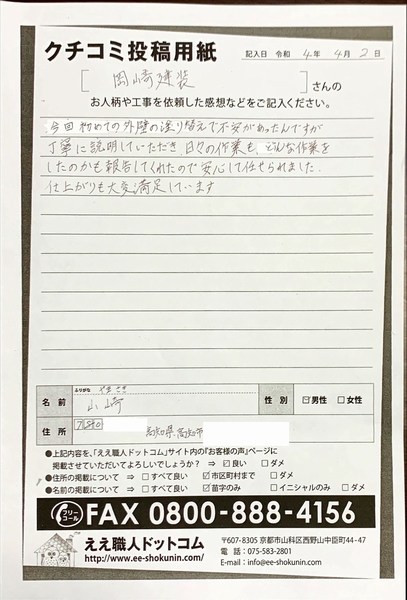 クチコミ投稿用紙
記入日 令和 4年 4月 2日
[岡崎建装]さんの
お人柄や工事を依頼した感想などをご記入ください。
今回初めての外壁の塗り替えで不安があったんですが
丁寧に説明していただき、日々の作業も、どんな作業を
したのかも報告してくれたので安心して任せられました。
仕上がりも大変満足しています
ふりがな やまさき
名前 山崎 性別 ☑男性 □女性
住所 高知県高知市
●上記内容を、「ええ職人ドットコム」サイト内の『お客様の声』ページに
掲載させていただいてよろしいでしょうか? ⇒ ☑良い □ダメ
●住所の掲載について ⇒ □すべて良い ☑市区町村まで □ダメ
●名前の掲載について ⇒ □すべて良い ☑苗字のみ □イニシャルのみ □ダメ
フリーコール FAX 0800-888-4156
ええ職人ドットコム
http://www.ee-shokunin.com/
〒607-8305 京都市山科区西野山中臣町44-47
電話:075-583-2801
E-mail:info@ee-shokunin.com